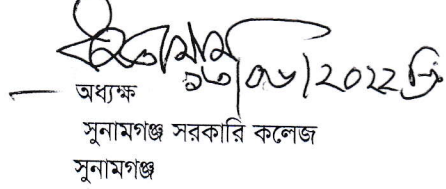 ১৩/০৬/২০২২ খ্রি
অধ্যক্ষ
সুনামগঞ্জ সরকারি কলেজ
সুনামগঞ্জ